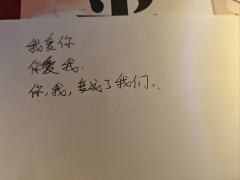 我爱你
你爱我.
你,我,变成了我们..